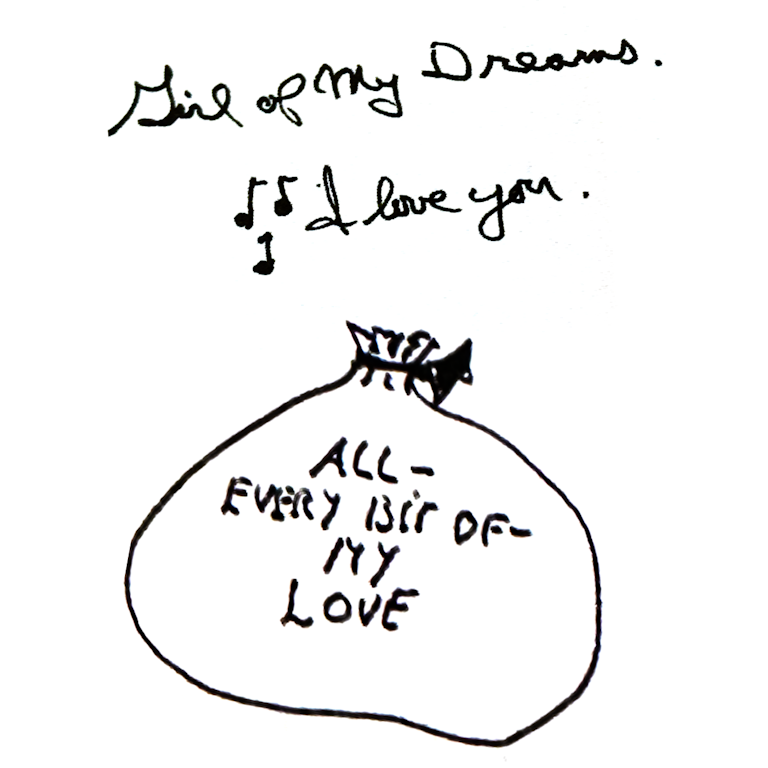 Girl of My Dreams.
I love you.
ALL-
EVERY BIT OF-
MY
LOVE